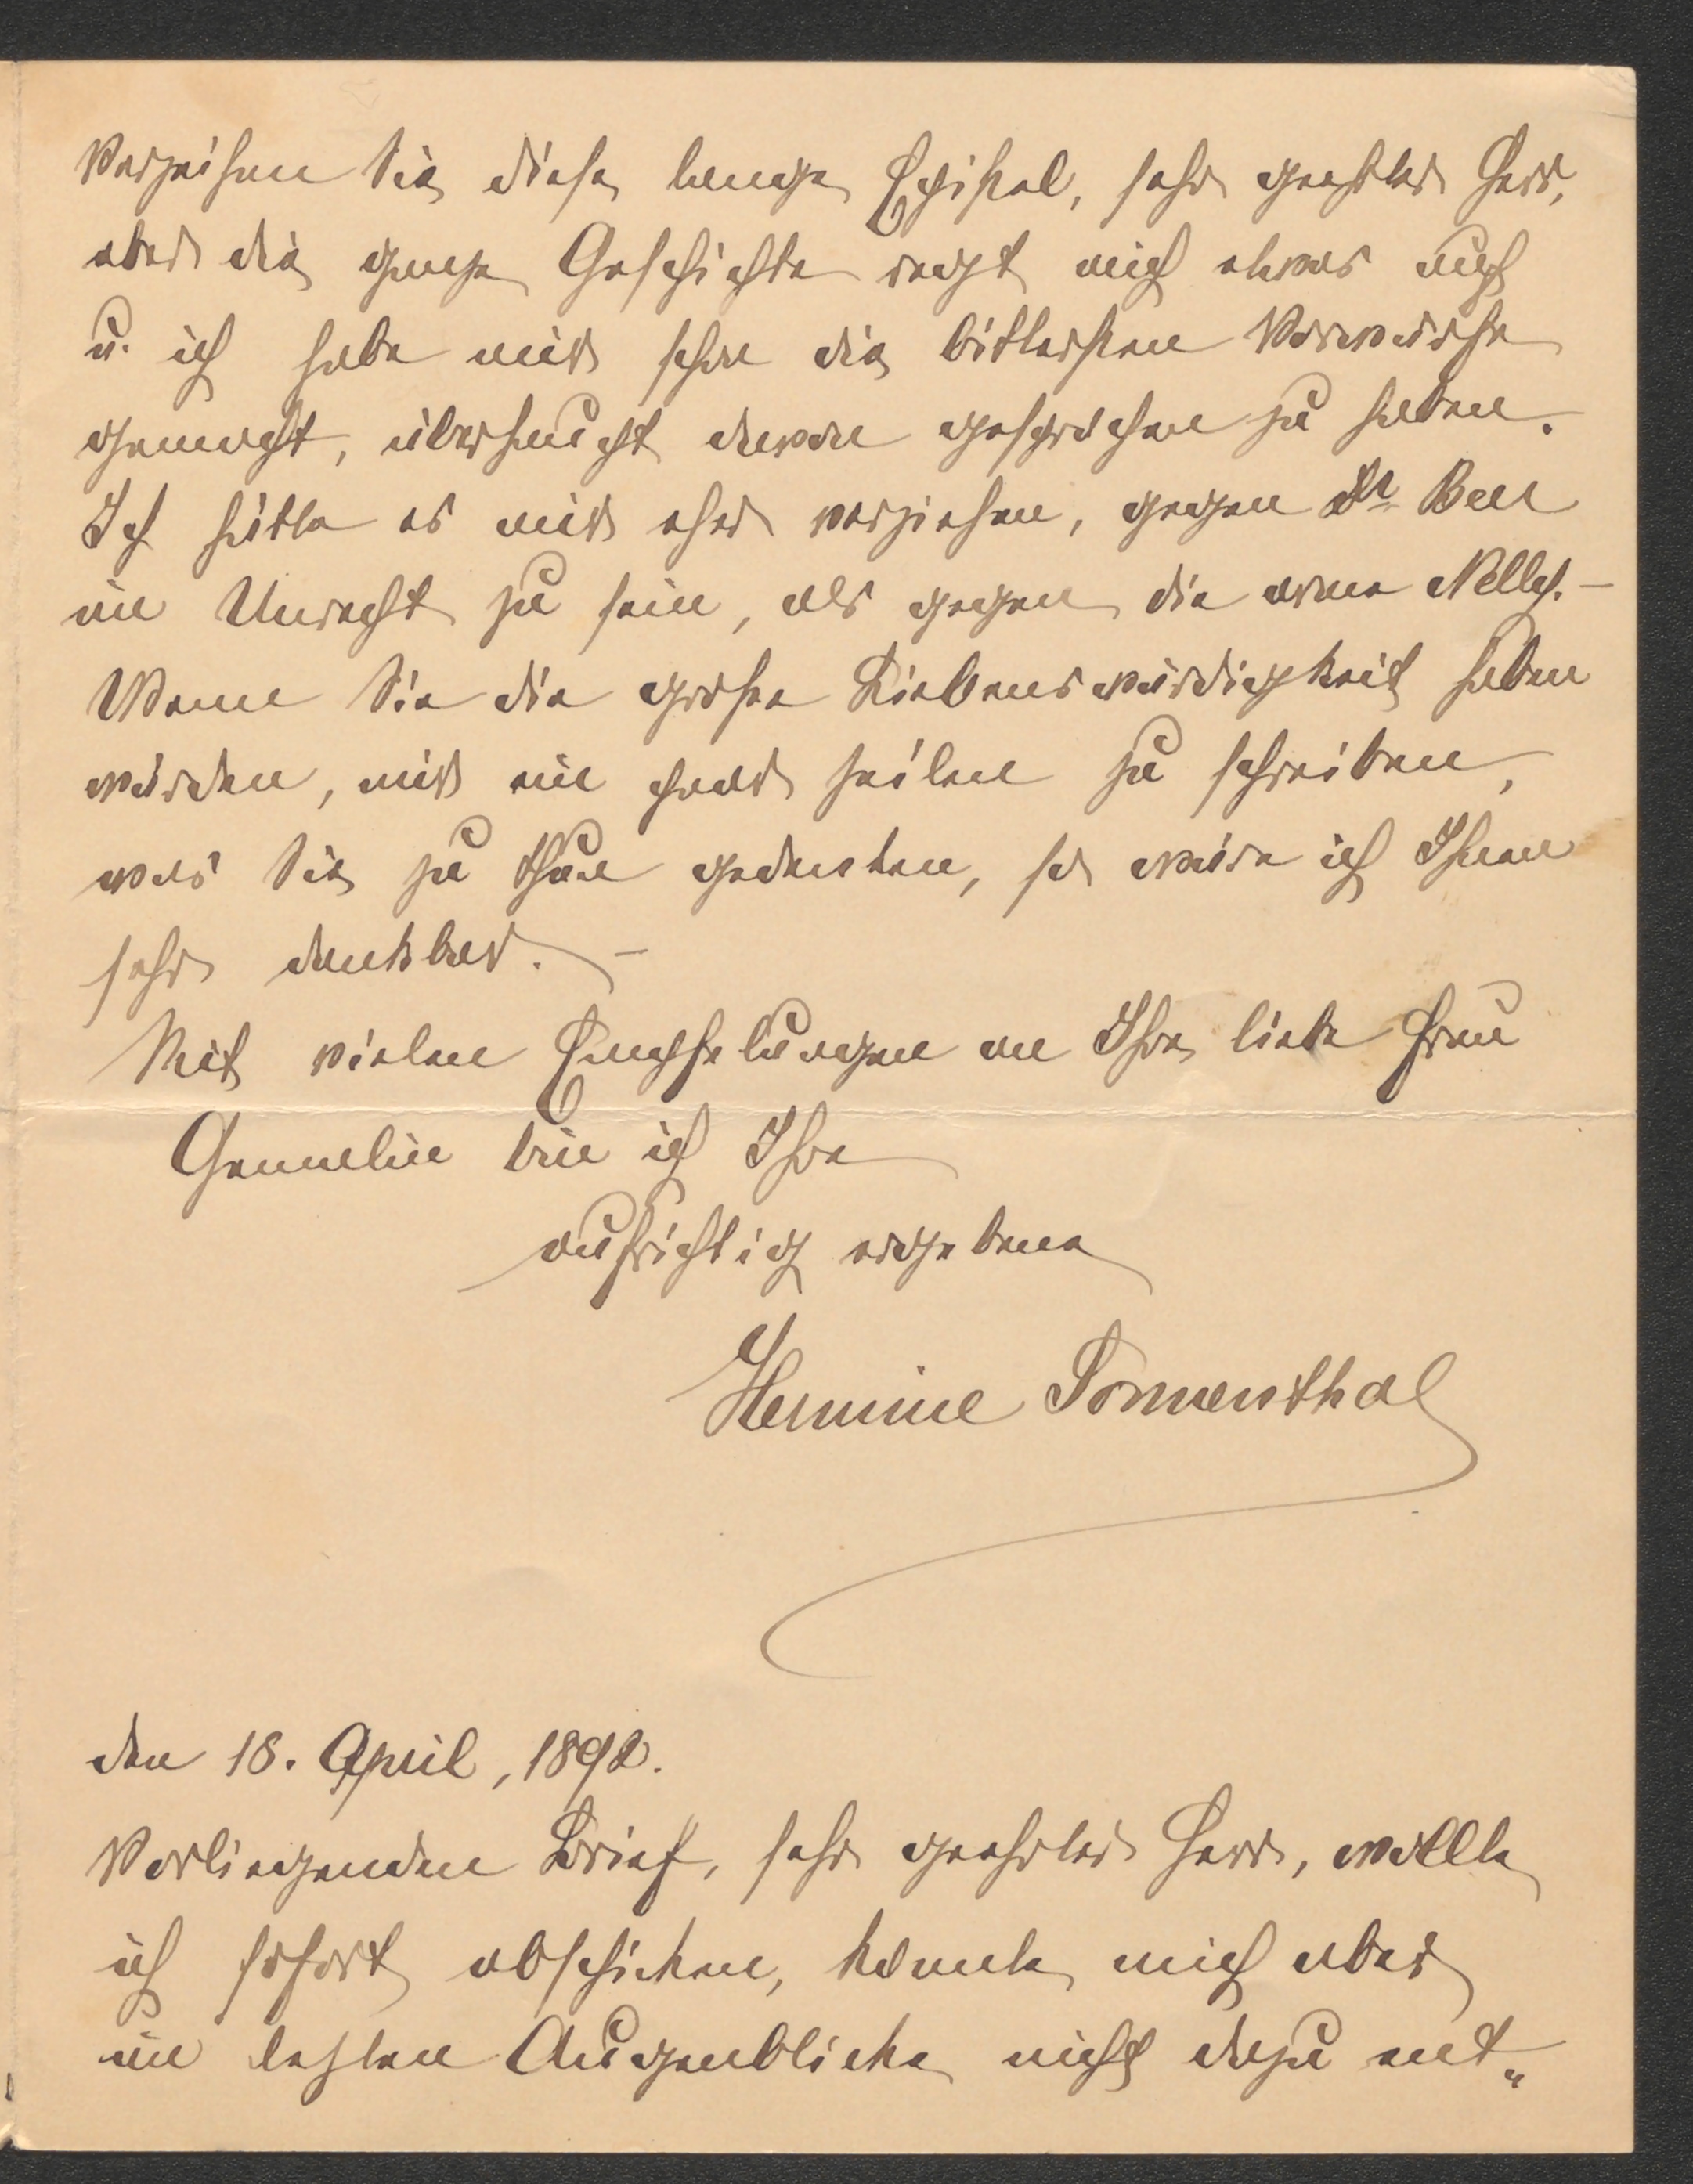 Verzeihen Sie diese lange Epistel, sehr geehrter Herr,
aber die ganze Geschichte regt mich etwas auf
u. ich habe mir schon die bittersten Vorwürfe
gemacht, überhaupt davon gesprochen zu haben.
Ich hätte es mir eher verziehen, gegen Dr Bell
im Unrecht zu sein, als gegen die arme Nelly. –
Wenn Sie die große Liebenswürdigkeit haben
würden, mir ein paar Zeilen zu schreiben,
was Sie zu thun gedenken, so wäre ich Ihnen
sehr dankbar. –
Mit vielen Empfelungen an Ihre liebe Frau
Gemalin bin ich Ihre
aufrichtig ergebene
Hermine Sonnenthal
den 18. April, 1892.
Vorliegenden Brief, sehr geehrter Herr, wollte
ich sofort abschicken, konnte mich aber
im letzten Augenblicke nicht dazu ent„